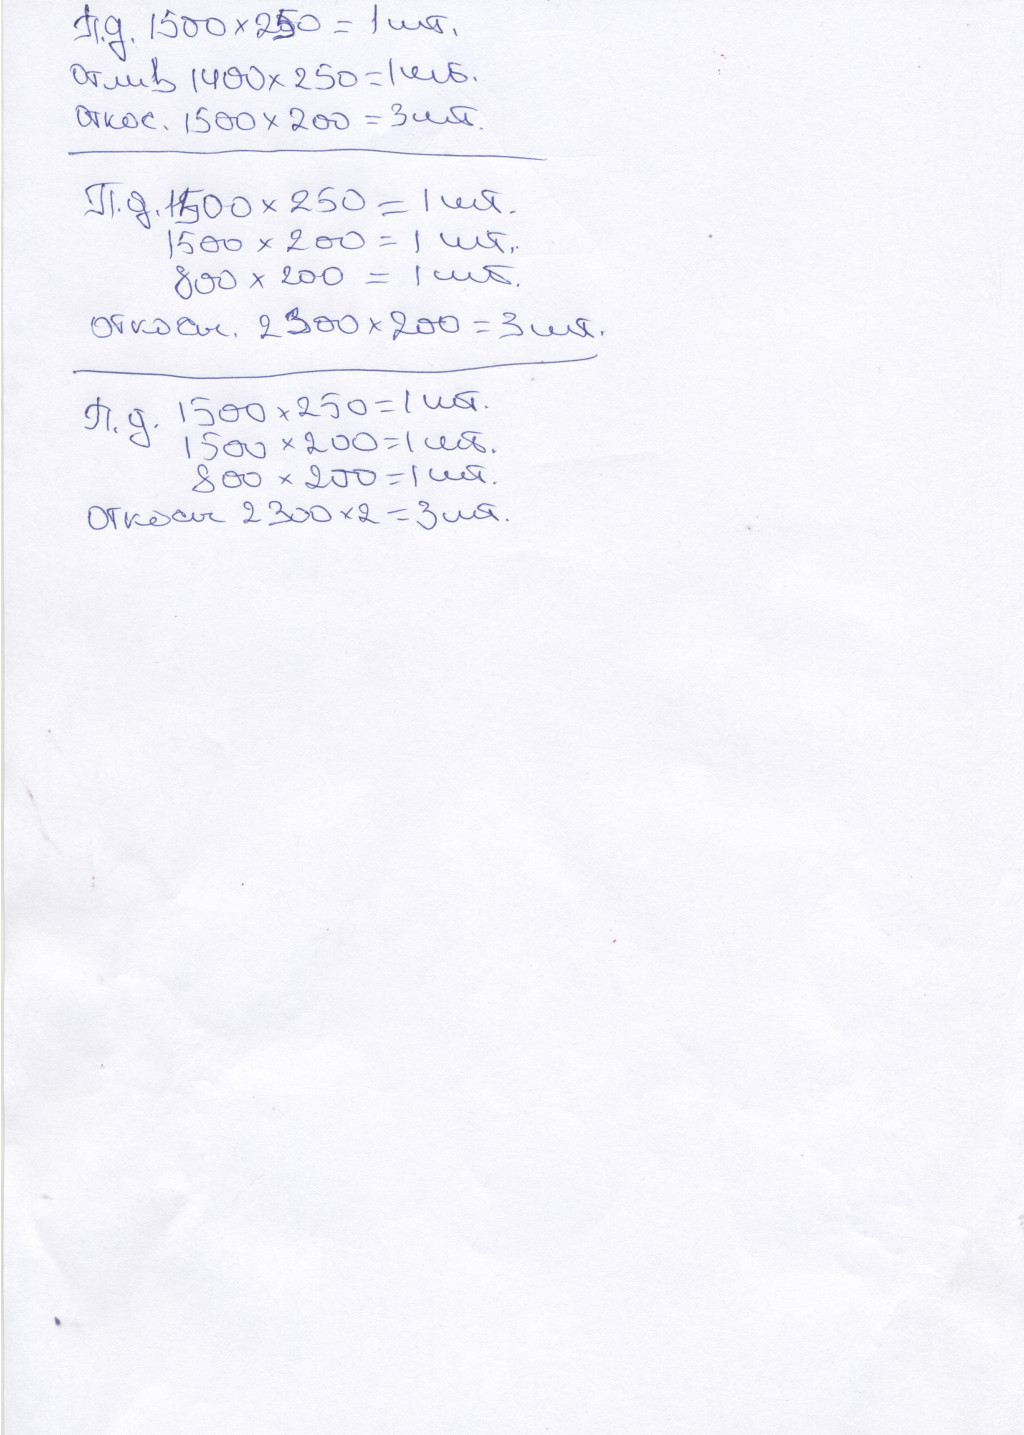 П.д. 1500×250=1шт.
Отлив 1400×250=1шт.
Откос. 1500×200=3шт.
П.д. 1500×250=1шт.
1500×200=1шт.
800×200=1шт.
Откосы. 2300×200=3шт.
П.д. 1500×250=1шт.
1500×200=1шт.
800×200=1шт.
Откосы 2300×2=3шт.